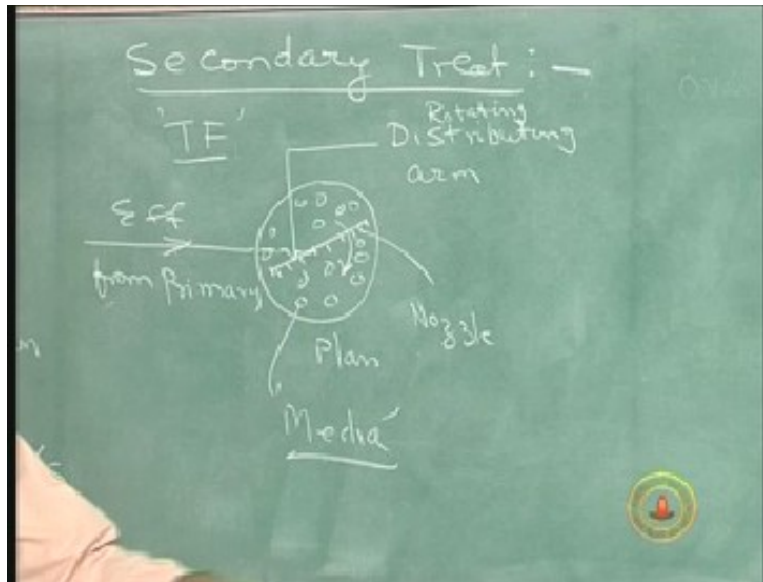 Secondary Treat : —
'TF'
Rotating
Distributing
arm
Eff
from Primary
Nozzle
Plan
'Media'